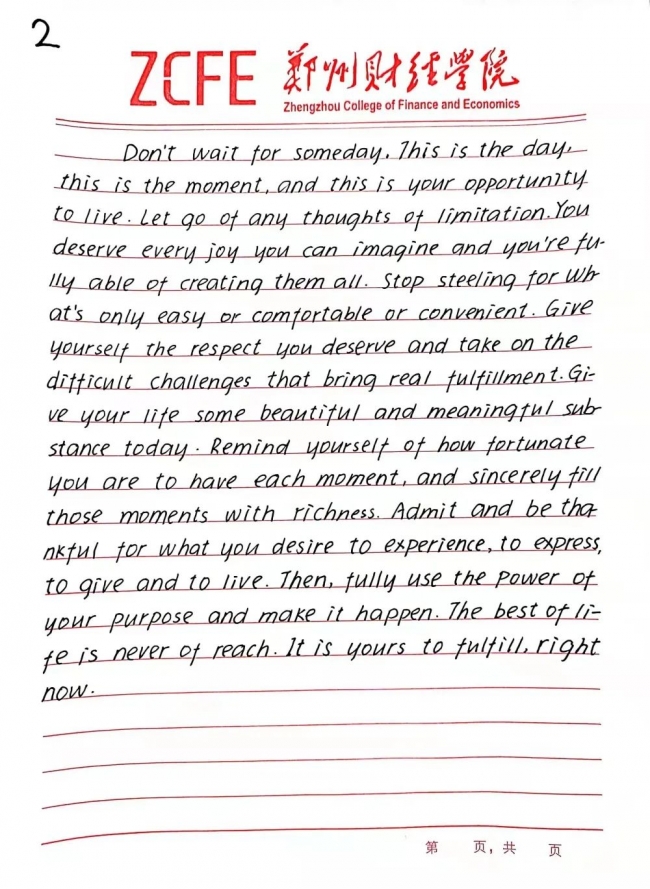 2
ZCFE 郑州财经学院
Zhengzhou College of Finance and Economics
Don't wait for someday. This is the day,
this is the moment, and this is your opportunity
to live. Let go of any thoughts of limitation. You
deserve every joy you can imagine and you're fu-
lly able of creating them all. Stop steeling for wh-
at's only easy or comfortable or convenient. Give
yourself the respect you deserve and take on the
difficult challenges that bring real fulfillment. Gi-
ve your life some beautiful and meaningful sub-
stance today. Remind yourself of how fortunate
you are to have each moment, and sincerely fill
those moments with richness. Admit and be tha-
nkful for what you desire to experience, to express,
to give and to live. Then, fully use the power of
your purpose and make it happen. The best of li-
fe is never of reach. It is yours to fulfill, right
now.
第 页, 共 页